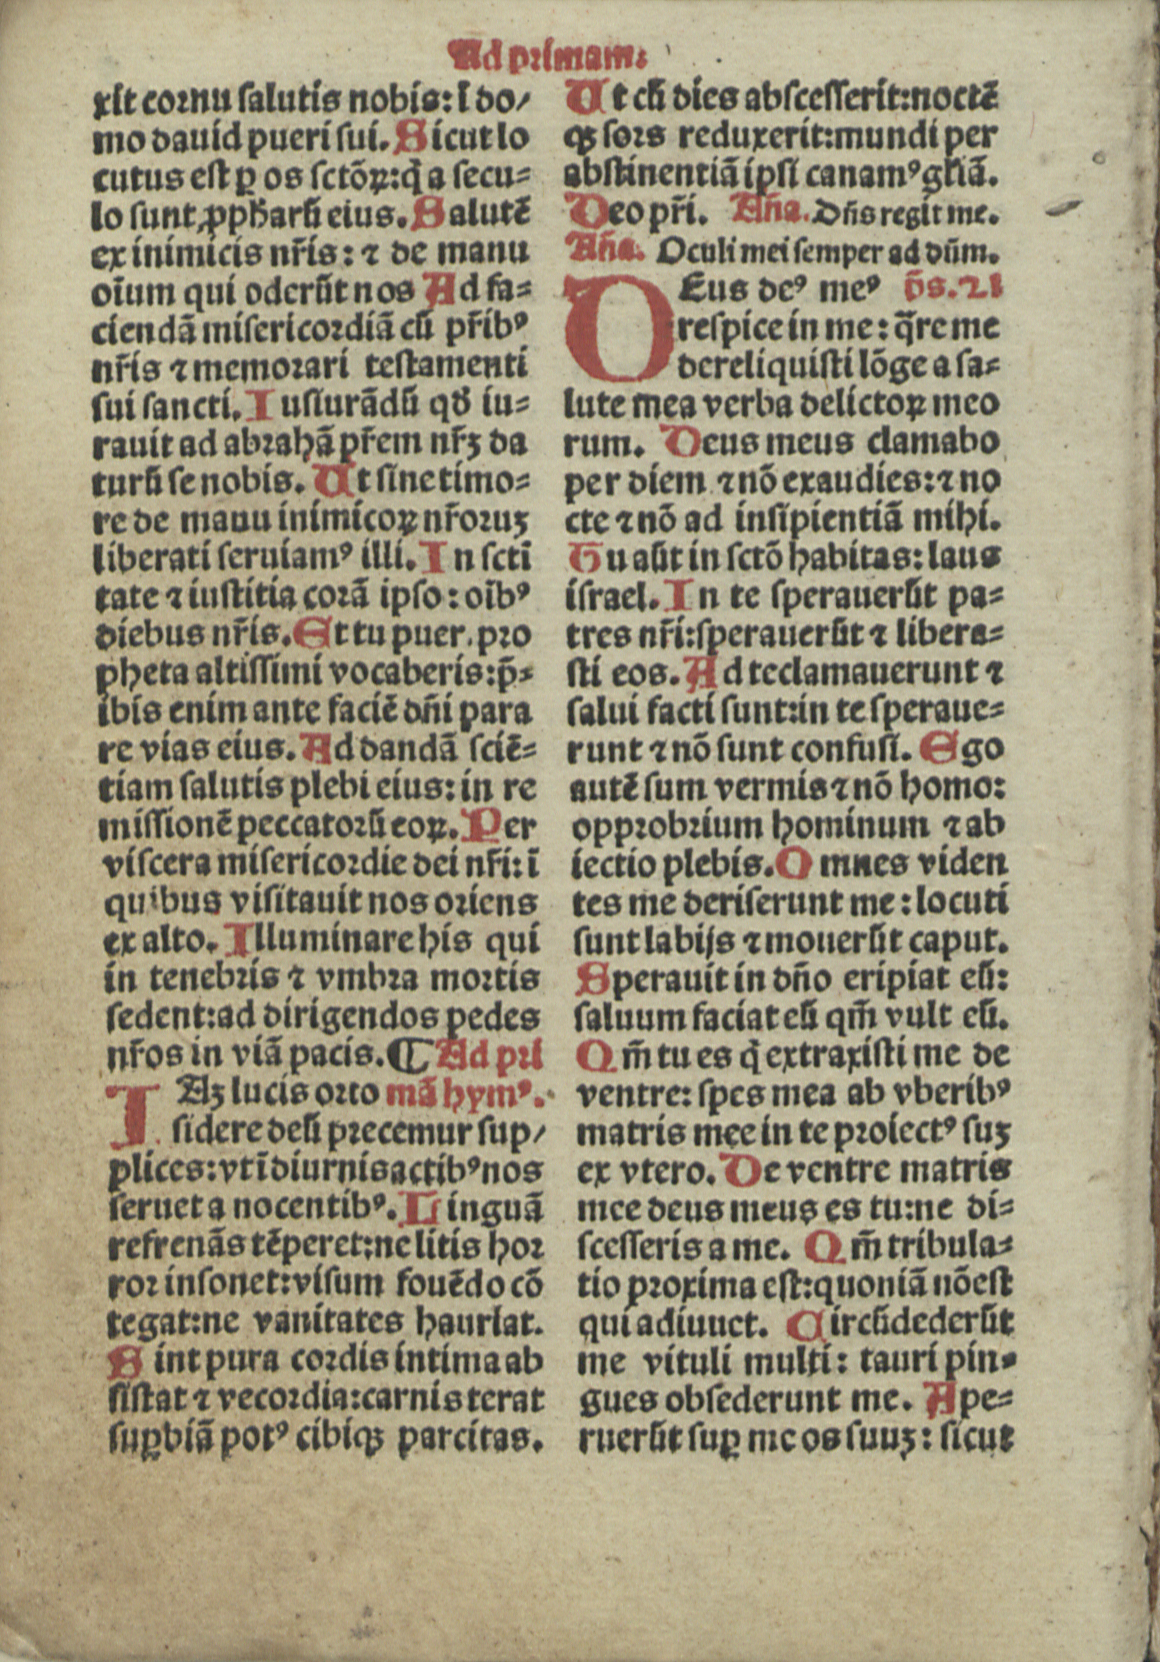 Ad primam.
xit cornu salutis nobis: ī do/
mo dauid pueri sui. Sicut lo
cutus est ꝑ os sctōꝝ: q̄ a secu⸗
lo sunt ꝓphetarū eius. Salutē
ex inimicis nr̄is: ⁊ de manu
oīum qui oderūt nos Ad fa⸗
ciendā misericordiā cū pr̄ibꝰ
nr̄is ⁊ memorari testamenti
sui sancti. Iusiurādū qđ iu⸗
rauit ad abrahā pr̄em nr̄ꝫ da
turū se nobis. Ut sine timo⸗
re de manu inimicoꝝ nr̄oruꝫ
liberati seruiamꝰ illi. In sctī
tate ⁊ iustitia corā ipso: oībꝰ
diebus nr̄is. Et tu puer. pro
pheta altissimi vocaberis: p̄⸗
ibis enim ante faciē dn̄i para
re vias eius. Ad dandā sciē⸗
tiam salutis plebi eius: in re
missionē peccatorū eoꝝ. Per
viscera misericordie dei nr̄i: ī
quibus visitauit nos oriens
ex alto. Illuminare his qui
in tenebris ⁊ vmbra mortis
sedent: ad dirigendos pedes
nr̄os in viā pacis. ⸿ Ad pri
IAꝫ lucis orto mā hymꝰ.
sidere deū precemur sup/
plices: vt ī diurnis actibꝰ nos
seruet a nocentibꝰ. Linguā
refrenās tēperet: ne litis hor
ror insonet: visum fouēdo cō
tegat: ne vanitates hauriat.
Sint pura cordis intima ab
sistat ⁊ vecordia: carnis terat
suꝑbiā potꝰ cibiqꝫ parcitas.
Ut cū dies abscesserit: noctē
qꝫ sors reduxerit: mundi per
abstinentiā ipsi canamꝰ gl̄iā.
Deo pr̄i. Añа. Dn̄s regit me.
Aña. Oculi mei semper ad dūm.
DEus deꝰ meꝰ p̄s.21
respice in me: q̄re me
dereliquisti lōge a sa⸗
lute mea verba delictoꝝ meo
rum. Deus meus clamabo
per diem ⁊ nō exaudies: ⁊ no
cte ⁊ nō ad insipientiā mihi.
Tu aūt in sctō habitas: laus
israel. In te sperauerūt pa⸗
tres nr̄i: sperauerūt ⁊ libera⸗
sti eos. Ad te clamauerunt ⁊
salui facti sunt: in te speraue⸗
runt ⁊ nō sunt confusi. Ego
autē sum vermis ⁊ nō homo:
opprobrium hominum ⁊ ab
iectio plebis. Omnes viden
tes me deriserunt me: locuti
sunt labijs ⁊ mouerūt caput.
Sperauit in dn̄o eripiat eū:
saluum faciat eū qm̄ vult eū.
Qm̄ tu es q̄ extraxisti me de
ventre: spes mea ab vberibꝰ
matris mee in te proiectꝰ suꝫ
ex vtero. De ventre matris
mee deus meus es tu: ne di⸗
scesseris a me. Qm̄ tribula⸗
tio proxima est: quoniā nō est
qui adiuuet. Circūdederūt
me vituli multi: tauri pin⸗
gues obsederunt me. Ape⸗
ruerūt suꝑ me os suuꝫ: sicut